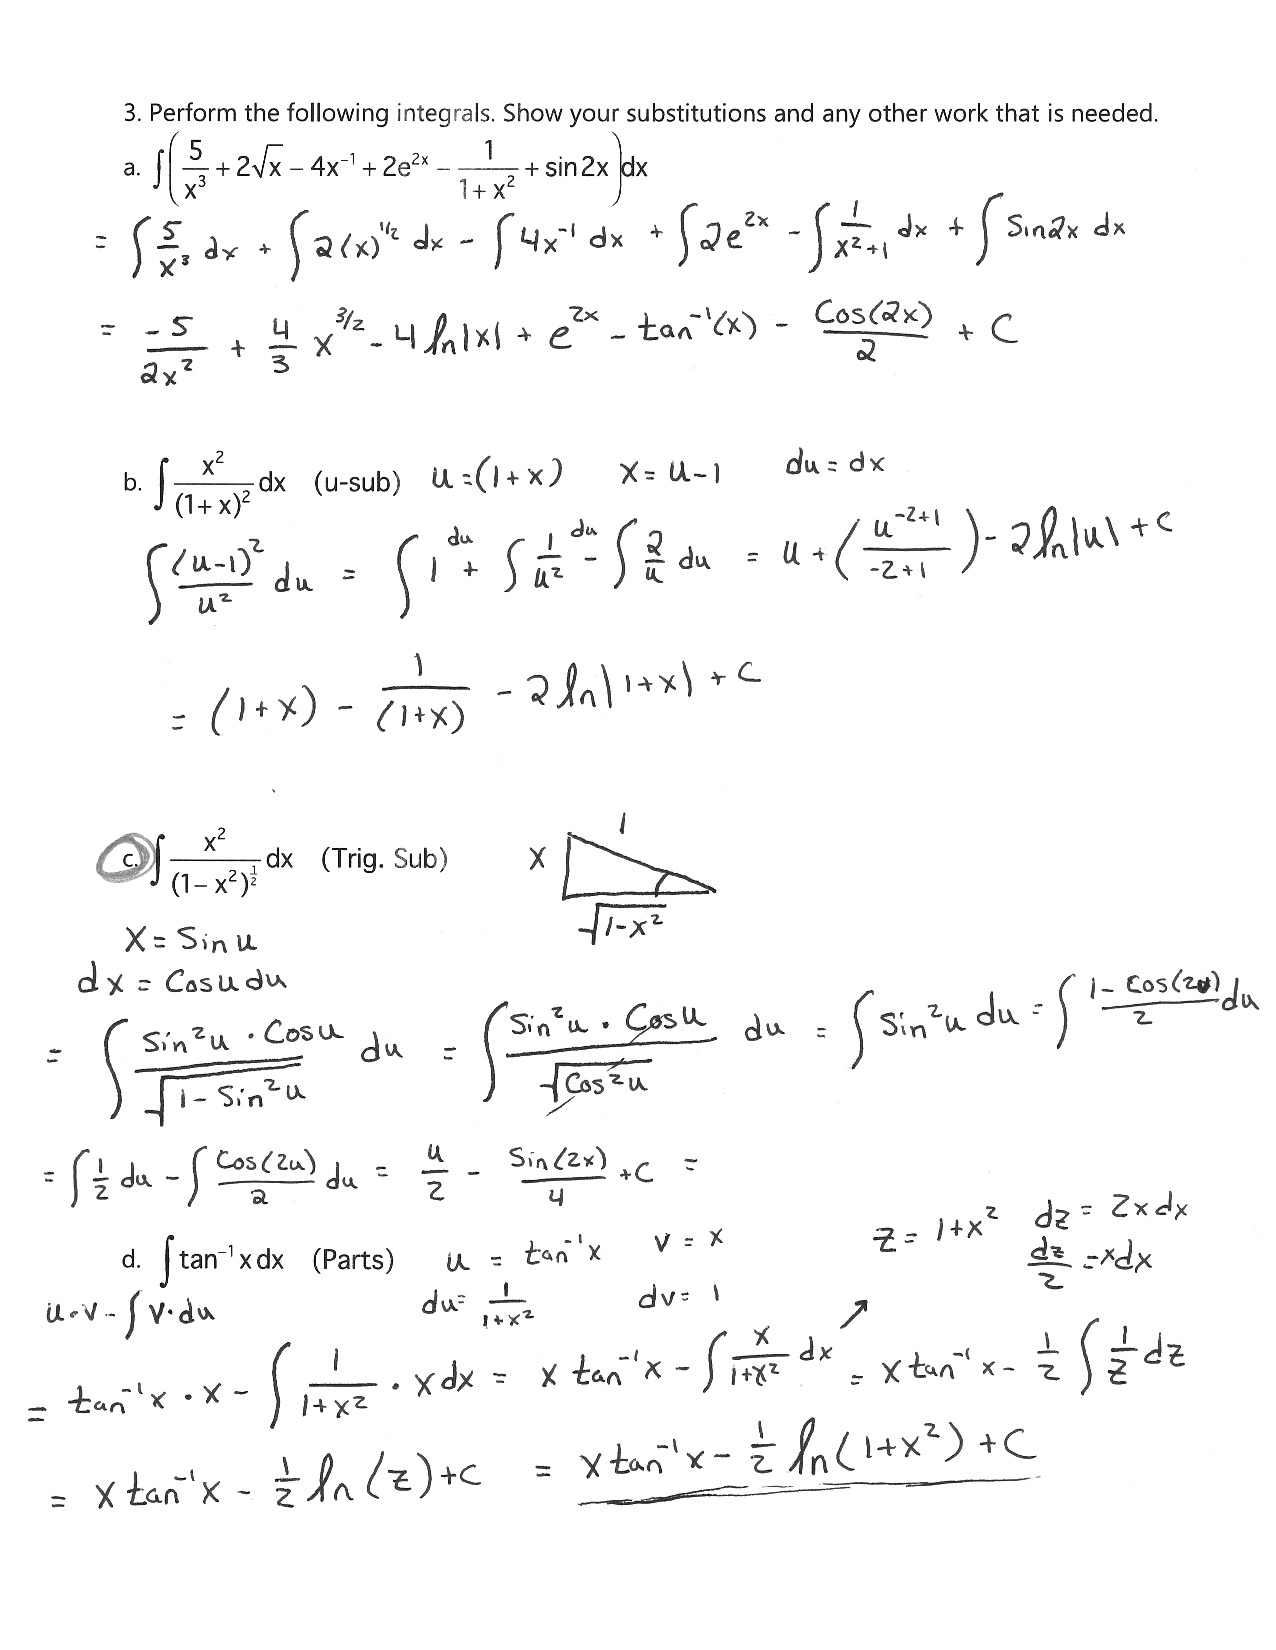 3. Perform the following integrals. Show your substitutions and any other work that is needed.
a. ∫(5/x³ + 2√x – 4x⁻¹ + 2e²ˣ – 1/(1+x²) + sin2x)dx
= ∫ 5/x³ dx + ∫ 2(x)^(1/2) dx - ∫ 4x⁻¹ dx + ∫ 2e²ˣ - ∫ 1/(x²+1) dx + ∫ Sin2x dx
= -5/(2x²) + 4/3 x^(3/2) - 4 ln|x| + e²ˣ - tan⁻¹(x) - Cos(2x)/2 + C
b. ∫ x²/(1+x)² dx (u-sub) u=(1+x) x=u-1 du=dx
∫ (u-1)²/u² du = ∫ 1 du + ∫ 1/u² du - ∫ 2/u du = u + (u^(-2+1)/(-2+1)) - 2ln|u| + C
= (1+x) - 1/(1+x) - 2ln|1+x| + C
c. ∫ x²/(1–x²)^(1/2) dx (Trig. Sub) X 1 √(1-x²)
X = Sin u
dx = Cosu du
= ∫ (Sin²u · Cosu)/√(1-Sin²u) du = ∫ (Sin²u · Cosu)/√(Cos²u) du = ∫ Sin²u du = ∫ (1-Cos(2u))/2 du
= ∫ 1/2 du - ∫ Cos(2u)/2 du = u/2 - Sin(2x)/4 + C =
d. ∫tan⁻¹xdx (Parts) u = tan⁻¹x v = x z = 1+x² dz = 2xdx
u·v - ∫ v·du du = 1/(1+x²) dv = 1 dz/2 = xdx
= tan⁻¹x · x - ∫ 1/(1+x²) · xdx = x tan⁻¹x - ∫ x/(1+x²) dx = x tan⁻¹x - 1/2 ∫ 1/z dz
= x tan⁻¹x - 1/2 ln(z) + C = x tan⁻¹x - 1/2 ln(1+x²) + C